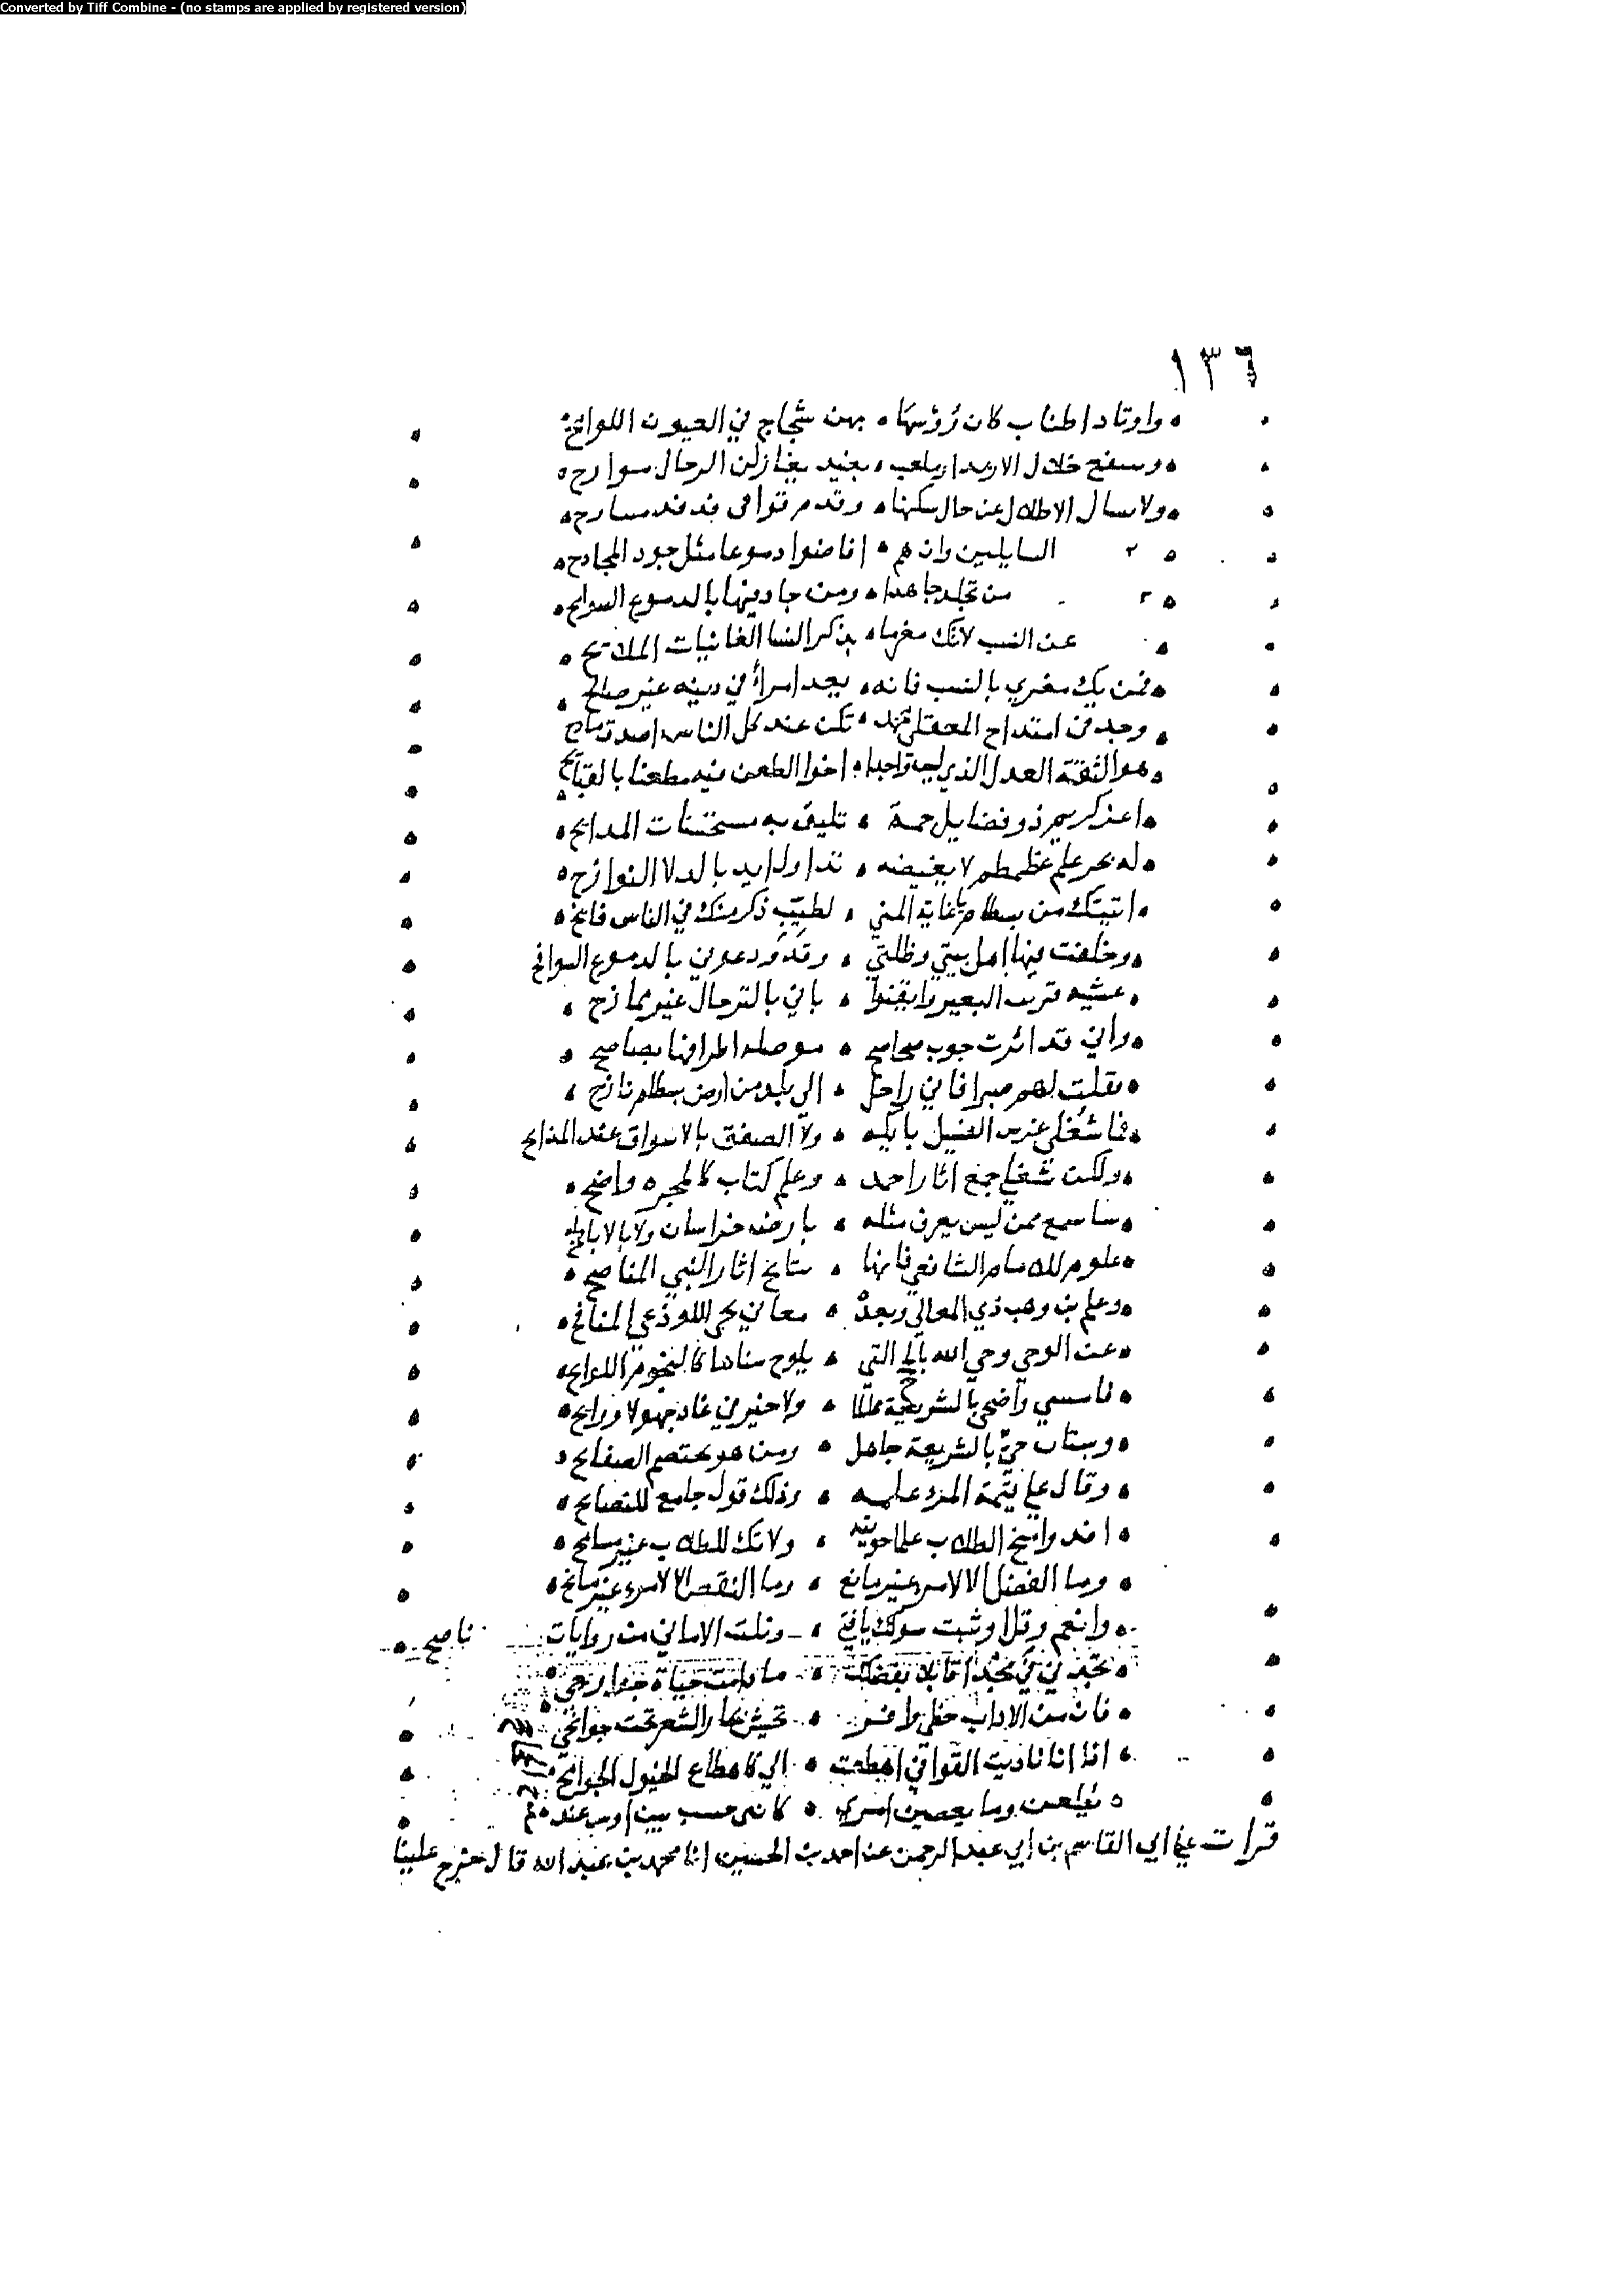 Converted by Tiff Combine - (no stamps are applied by registered version)
١٣٦
واوتاد اطناب كان رؤسها بهن شجاج في العيون اللوائح
وسفع خلال الارمدا وملعب بغيد يغازلن الرحال سوارح
ولا سال الاطلال عن حال سكنها وقد مر توافى فدفد مسارح
السايلين وان هم افاضوا دموعا مثل جود المجادح
من تجلد جاهدا ومن جاد منها بالدموع السوافح
عن النسب لا تك مغرما بذكر النسا الغانيات الملائح
فمن يك مغري بالنسب فانه يعد امرأ في دينه غير صالح
وجد في امتداح تكن عند كل الناس اصدق مادح
هو الثقة العدل الذي ليس واجدا اخوا الطعن فيه مطعنا بالقبائح
اعز كريم ذو فضايل جمة تليق به مستحسنات المدايح
له بحر علم غطمطم لا يغيضه تداول ايد بالدلا النوازح
اتيتك من بسطام يا غاية المني لطيب ذكر منك في الناس فايح
وخلفت فيها اهل بيتي وظلتي وقد ودعوني بالدموع السوافح
عشيه قربت البعير وايقنوا باني بالترحال غير ممازح
واني قد اثرت جوب صحاصح موصله اطرافها بصحاصح
فقلت لهم صبرا فاني راحل الى بلد من ارض بسطام نازح
فما شغلي غرس الفسيل بايكه ولا الصفق بالاسواق عند المذابح
ولكن شغلي جمع اثار احمد وعلم كتاب كالمجره واضح
ساسمع ممن ليس يعرف مثله بارض خراسان ولا بالاباطح
علوم للامام الشافعي فانها نتايج اثار النبي المناصح
وعلم بن وهب ذي المعالي وبعد معاني يحي اللوذعي المنافح
عن الوحي وحي الله بالي التي يلوح سناها كالنجوم اللوايح
فامسي واضحي بالشريعة عالما ولا خير في غاد جهولا ورايح
وستان حي بالشريعة جاهل ومن هو تحتهم الصفايح
وقال علي قيمة المرء علمه وذلك قول جامع للنصايح
افد وانسخ الطلاب علما حويته ولا تك للطلاب غير مسامح
وما الفضل الا لامرء غير مانع وما النقص الا لامرء غير مانح
وانعم وقل اوثبت سولك يا فتي ونلت الاماني من روايات ناصح
تجدني مجدا قايلا بفضلك ما دامت حياة جوارحي
فان من الاداب حظي وافر تجيش بحار الشعر تحت جوانحي
اذا انا ناديت القوافي اهطعت الي كاهطاع الخيول الجوامح
يطعن وما يعصين امري كانني حسب بين اوس عندهم
قرات على ابي القاسم بن ابي عبد الرحمن عن احمد بن الحسين انا محمد بن عبد الله قال خرج علينا